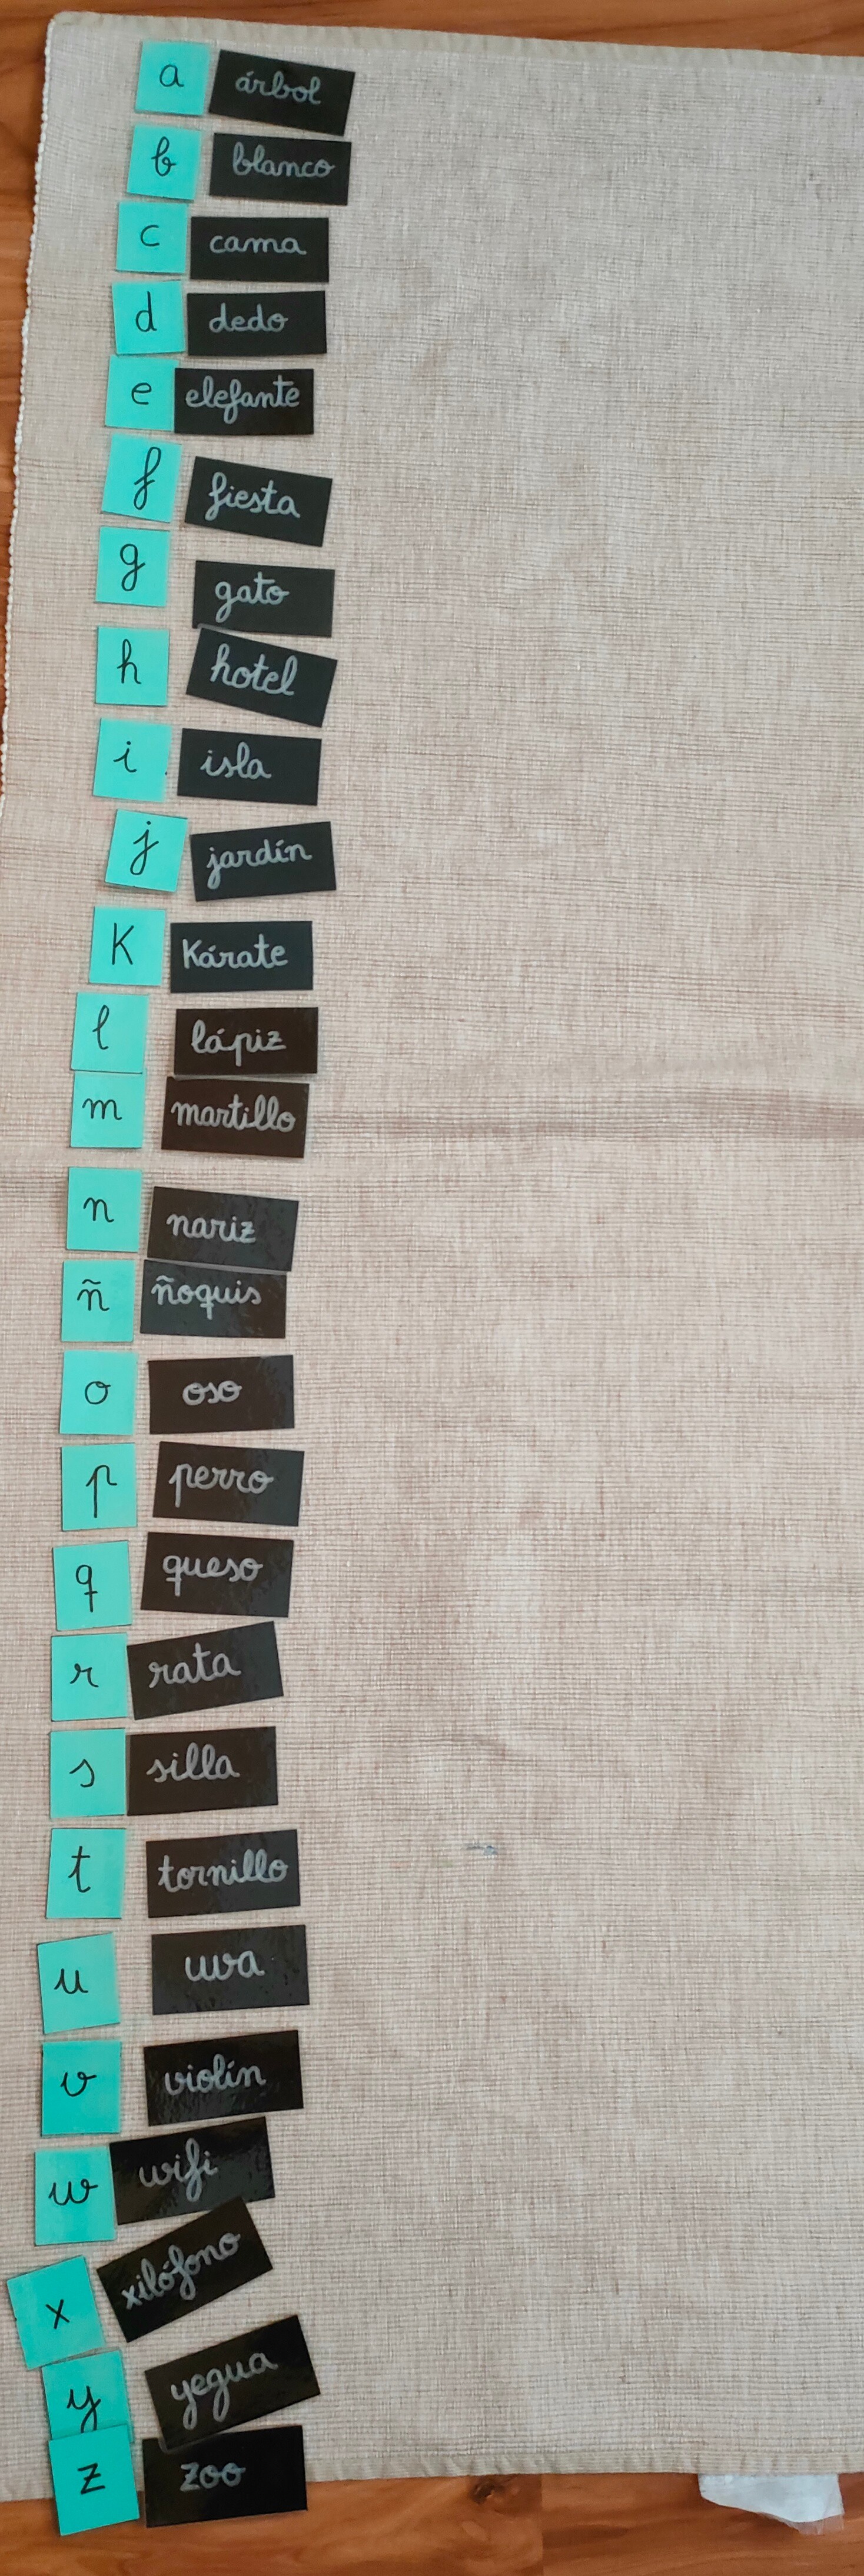 a árbol
b blanco
c cama
d dedo
e elefante
f fiesta
g gato
h hotel
i isla
j jardín
K Kárate
l lápiz
m martillo
n nariz
ñ ñoquis
o oso
p perro
q queso
r rata
s silla
t tornillo
u uva
v violín
w wifi
x xilófono
y yegua
z zoo